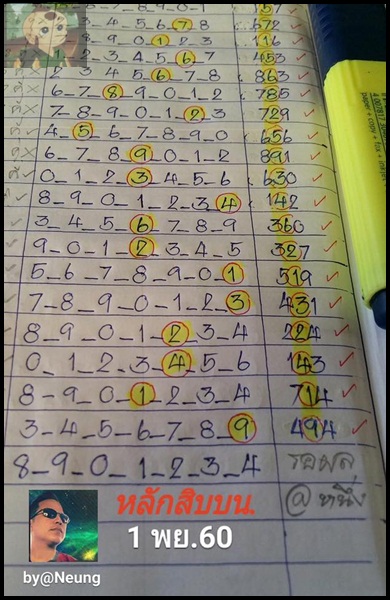 7_8_9_0_1 157
3_4_5_6_7_8 672
8_9_0_1_2_3 116
2_3_4_5_6_7 453
2_3_4_5_6_7_8 863
6_7_8_9_0_1_2 785
7_8_9_0_1_2_3 729
4_5_6_7_8_9_0 656
6_7_8_9_0_1_2 891
0_1_2_3_4_5_6 630
8_9_0_1_2_3_4 142
3_4_5_6_7_8_9 360
9_0_1_2_3_4_5 327
5_6_7_8_9_0_1 519
7_8_9_0_1_2_3 431
8_9_0_1_2_3_4 224
0_1_2_3_4_5_6 143
8_9_0_1_2_3_4 714
3_4_5_6_7_8_9 494
8_9_0_1_2_3_4 รอผล
@หนึ่ง
หลักสิบบน.
1 พย.60
by@Neung